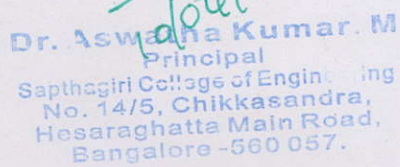 Dr. Aswatha Kumar. M
Principal
Sapthagiri College of Engineering
No. 14/5, Chikkasandra,
Hesaraghatta Main Road,
Bangalore-560 057.